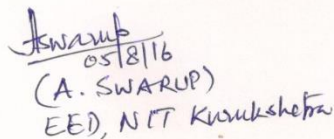 Aswarup
05/8/16
(A. SWARUP)
EED, NIT Kurukshetra